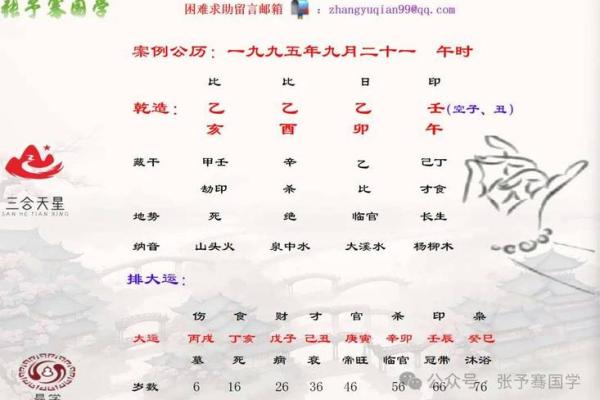 张予骞国学
困难求助留言邮箱 ：zhangyuqian99@qq.com
案例公历：一九九五年九月二十一 午时
比 比 日 印
乾造：乙 乙 乙 壬(空子、丑)
亥 酉 卯 午
藏干 甲壬 辛 乙 己丁
劫印 杀 比 才食
地势 死 绝 临官 长生
纳音 山头火 泉中水 大溪水 杨柳木
三合天星
SAN HE TIAN XING
排大运：
伤 食 财 才 官 杀 印 枭
大运 丙戌 丁亥 戊子 己丑 庚寅 辛卯 壬辰 癸巳
墓 死 病 衰 帝旺 临官 冠带 沐浴
岁数 6 16 26 36 46 56 66 76
公众号 · 张予骞国学